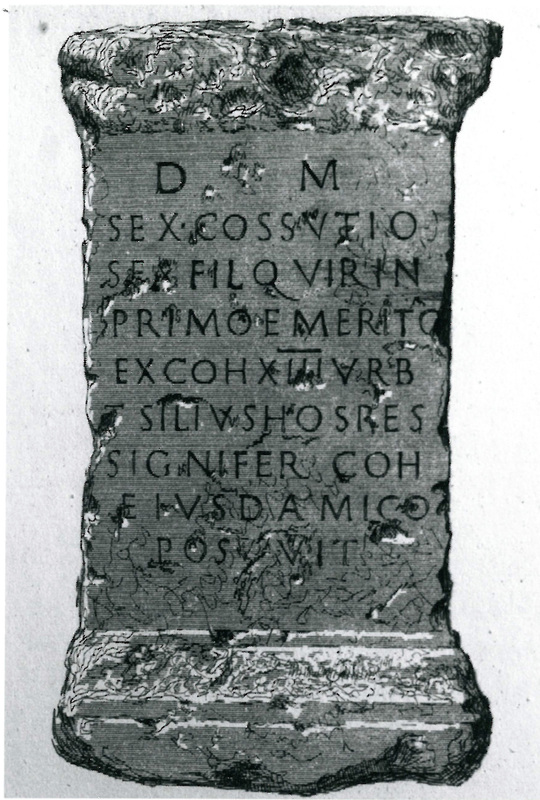 D M
SEX·COSSVTIO
SEX FIL QVIRIN
PRIMO EMERITO
EX COH XIII VRB
T SILIVS HOSRES
SIGNIFER COH
EIVSD AMICO
POSVIT